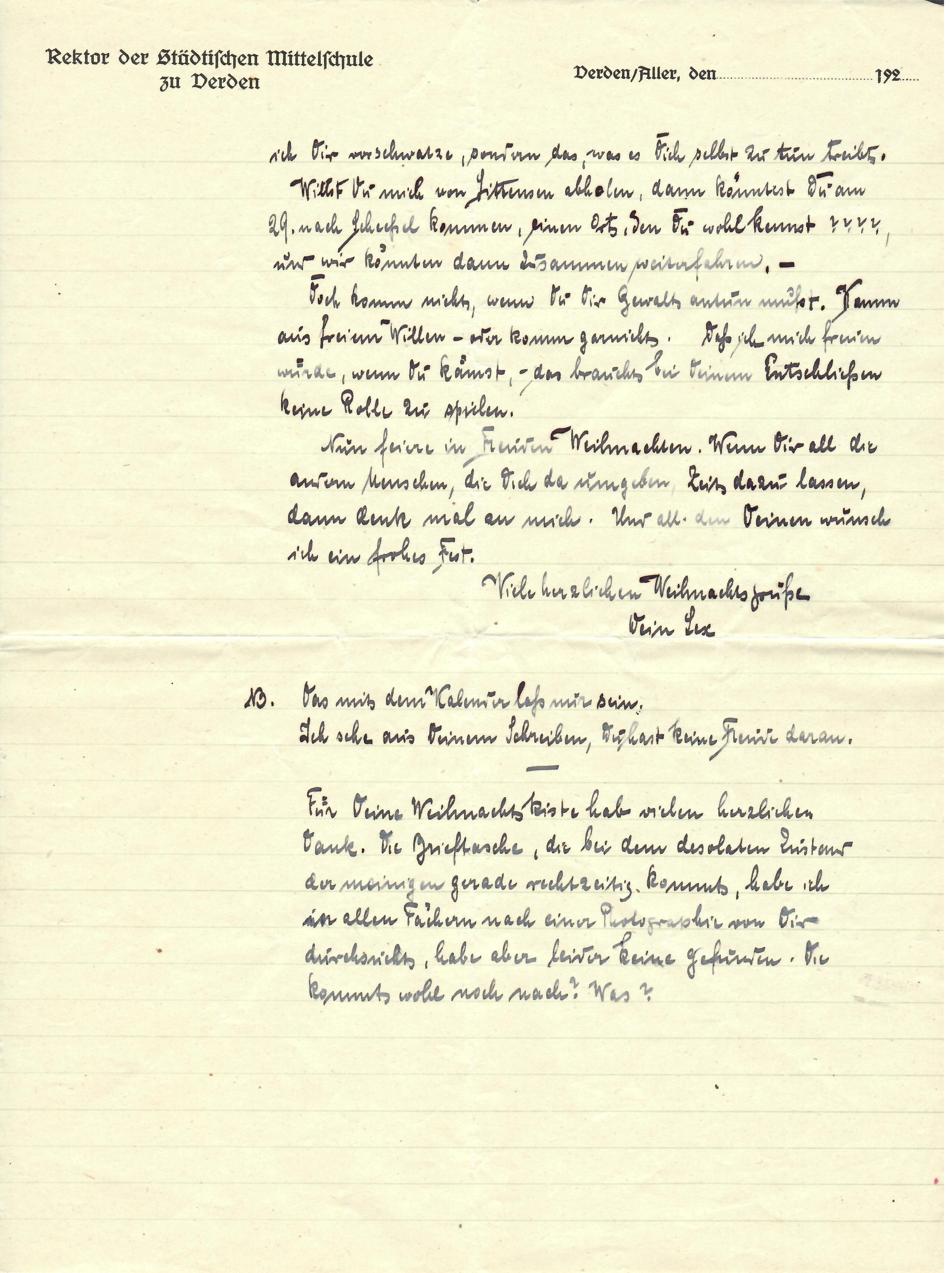 Rektor der Städtischen Mittelschule
zu Verden
Verden/Aller, den 192
ich Dir vorschwatze, sondern das, was es Dich selbst zu tun treibt.
Willst Du mich von Sittensen abholen, dann könntest Du am
29. nach Scheeßel kommen, einen Ort, den Du wohl kennst ????,
und wir könnten dann zusammen weiterfahren. –
Doch komm nicht, wenn Du Dir Gewalt antun mußt. Komm
aus freiem Willen – oder komm garnicht. Daß ich mich freuen
würde, wenn Du kämst, – das braucht bei Deinem Entschließen
keine Rolle zu spielen.
Nun feiere in Freuden Weihnachten. Wenn Dir all die
andern Menschen, die Dich da umgeben, Zeit dazu lassen,
dann denk mal an mich. Und all den Deinen wünsch
ich ein frohes Fest.
Viele herzlichen Weihnachtsgrüße
Dein Lex
NB. Das mit dem Kalender laß nur sein.
Ich sehe aus Deinem Schreiben, Du hast keine Freude daran.
—
Für Deine Weihnachtskiste hab vielen herzlichen
Dank. Die Brieftasche, die bei dem desolaten Zustand
der meinigen gerade rechtzeitig kommt, habe ich
in allen Fächern nach einer Photographie von Dir
durchsucht, habe aber leider keine gefunden. Die
kommt wohl noch nach? Was?